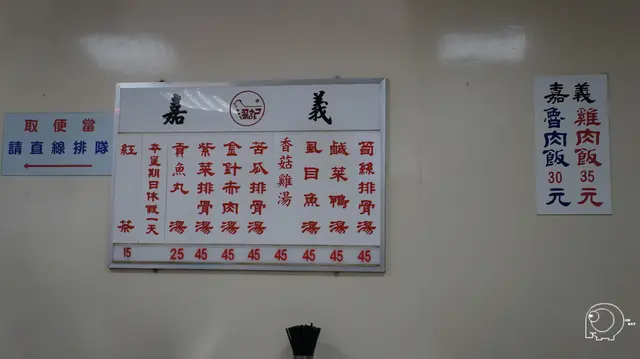 取便當
請直線排隊
嘉 義
筍絲排骨湯 45
鹹菜鴨湯 45
虱目魚湯 45
香菇雞湯 45
苦瓜排骨湯 45
金針赤肉湯 45
紫菜排骨湯 45
貢魚丸湯 25
本星期日休假一天
紅茶 15
義雞肉飯35元
嘉魯肉飯30元